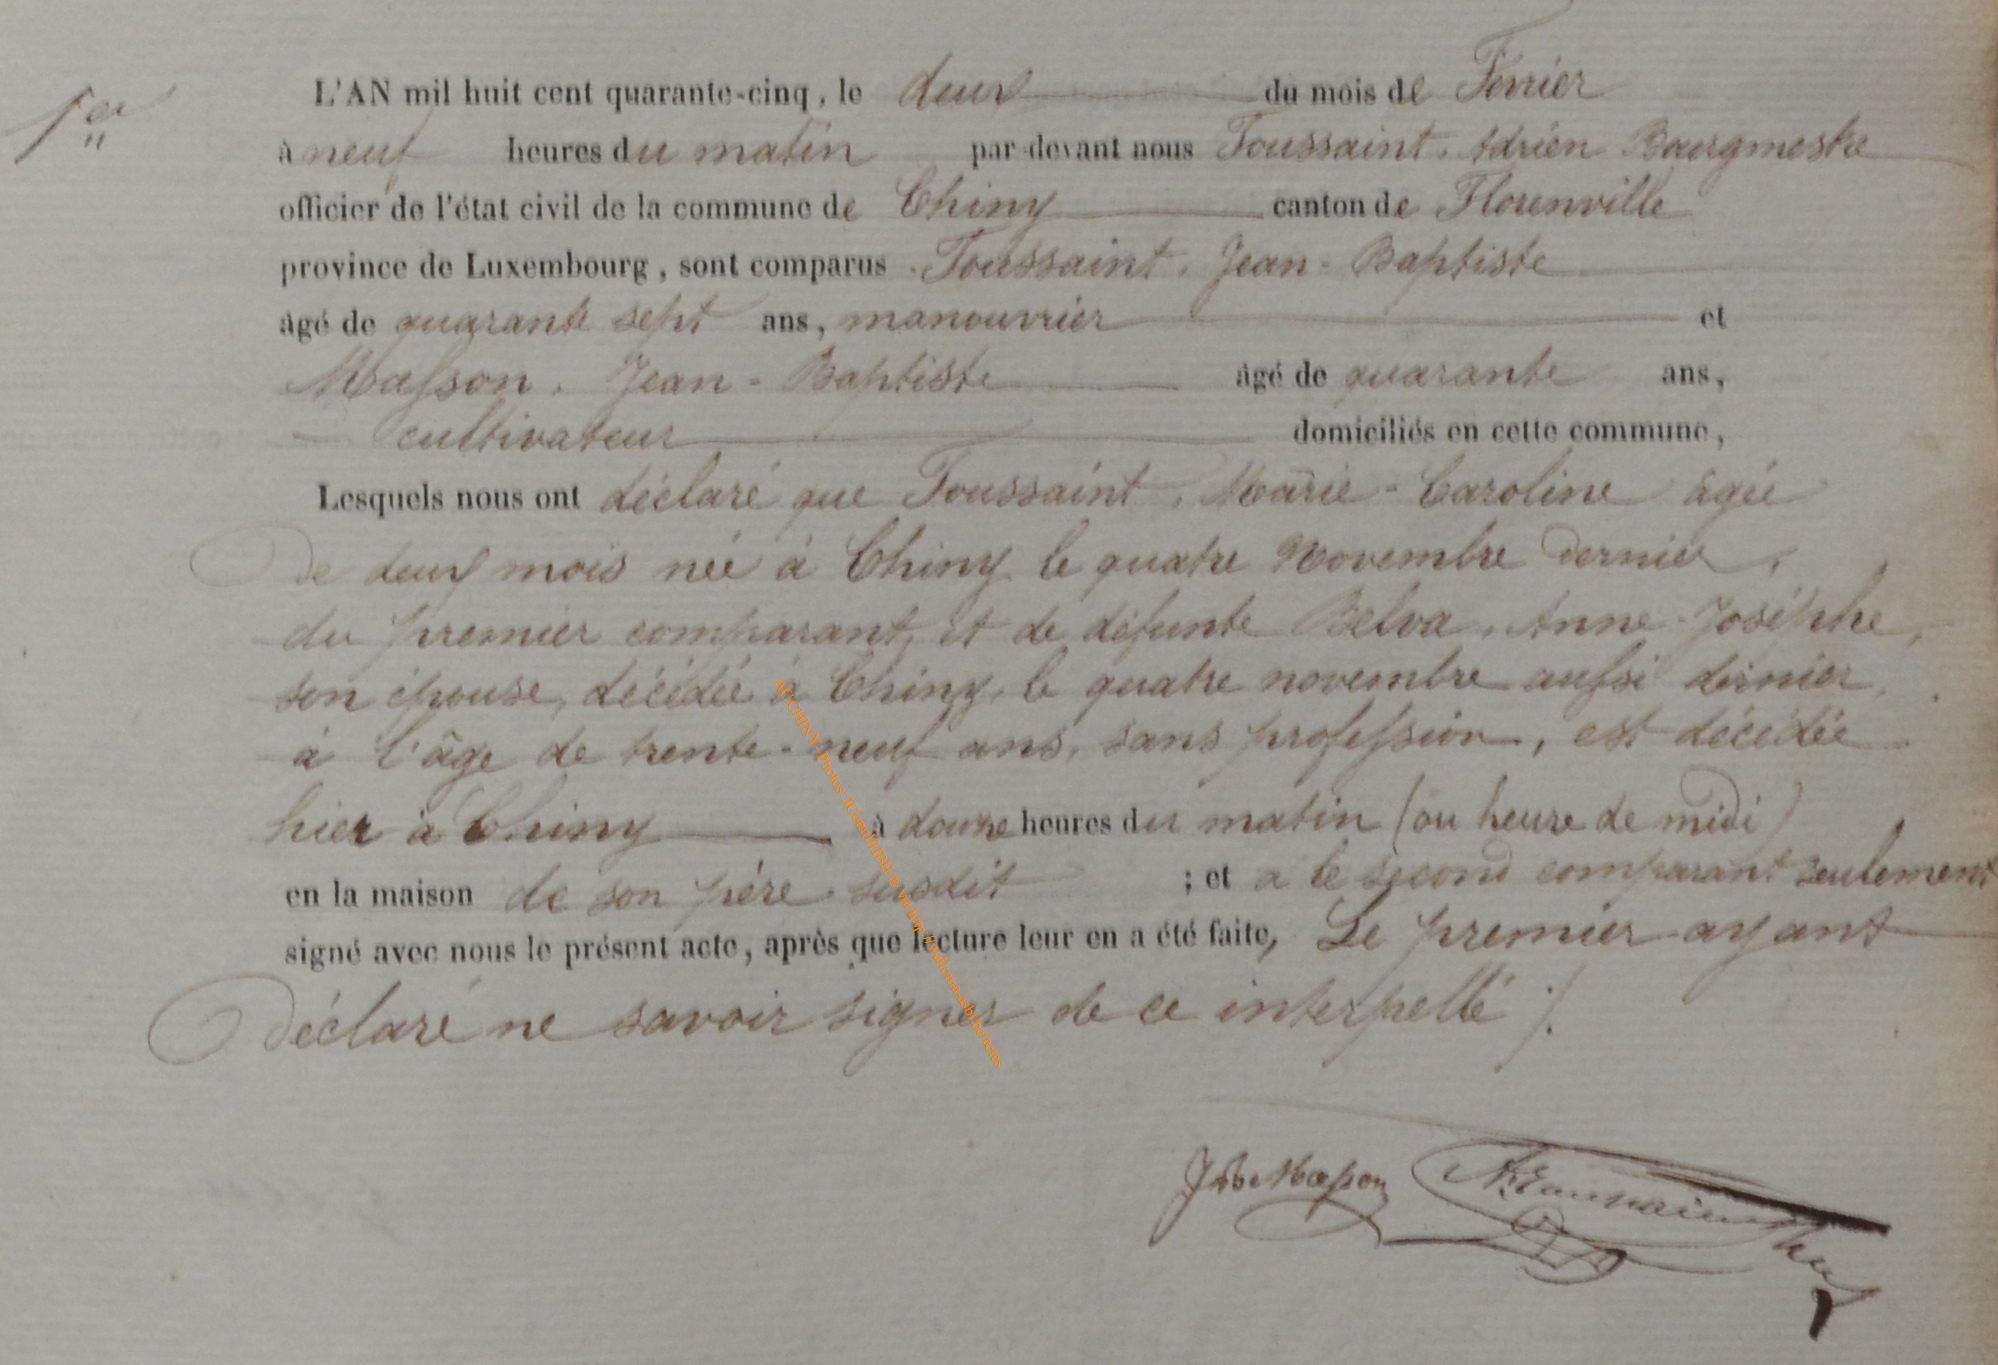 1er
L'AN mil huit cent quarante-cinq, le deux du mois de Fevrier
à neuf heures du matin par-devant nous Toussaint. Adrien Bourgmestre
officier de l'état civil de la commune de Chiny canton de Florenville
province de Luxembourg, sont comparus Toussaint. Jean-Baptiste
âgé de quarante sept ans, manouvrier et
Masson. Jean-Baptiste âgé de quarante ans,
cultivateur domiciliés en cette commune,
Lesquels nous ont déclaré que Toussaint, Marie-Caroline agée
De deux mois née à Chiny le quatre Novembre dernier,
du premier comparant, et de défunte Belva, Anne-Joséphe,
son épouse, décédée à Chiny, le quatre novembre aussi dernier,
à l'âge de trente-neuf ans, sans profession, est décédée
hier à Chiny à douze heures du matin (ou heure de midi)
en la maison de son père susdit ; et a le second comparant seulement
signé avec nous le présent acte, après que lecture leur en a été faite, Le premier ayant
Déclaré ne savoir signer de ce interpellé ./.
JB Masson A. Toussaint